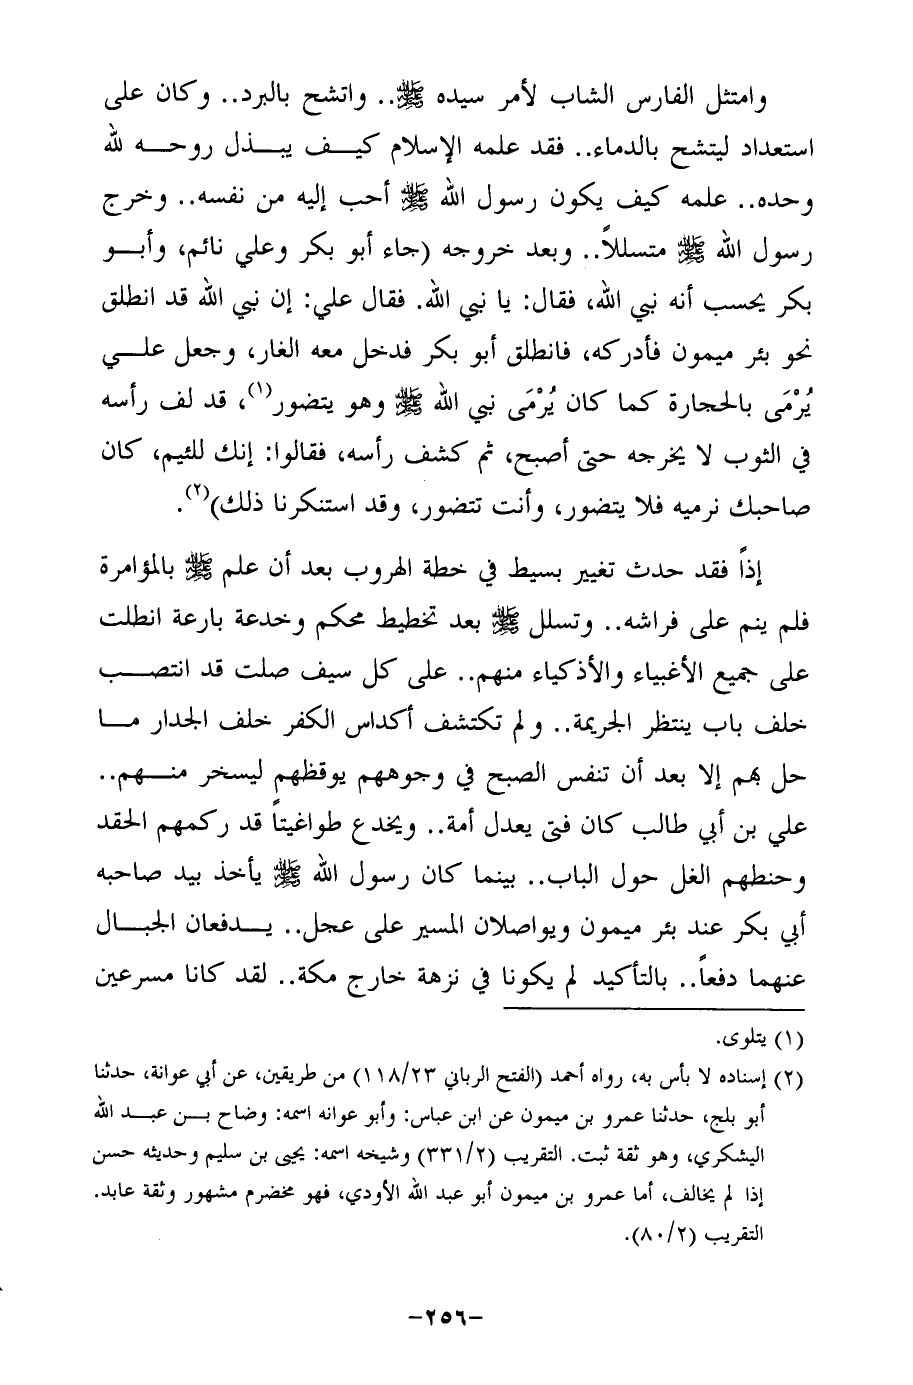 وامتثل الفارس الشاب لأمر سيده ﷺ.. واتشح بالبرد.. وكان على
استعداد ليتشح بالدماء.. فقد علمه الإسلام كيف يبذل روحه لله
وحده.. علمه كيف يكون رسول الله ﷺ أحب إليه من نفسه.. وخرج
رسول الله ﷺ متسللاً.. وبعد خروجه (جاء أبو بكر وعلي نائم، وأبو
بكر يحسب أنه نبي الله، فقال: يا نبي الله. فقال علي: إن نبي الله قد انطلق
نحو بئر ميمون فأدركه، فانطلق أبو بكر فدخل معه الغار، وجعل علي
يُرْمَى بالحجارة كما كان يُرْمَى نبي الله ﷺ وهو يتضور(١)، قد لف رأسه
في الثوب لا يخرجه حتى أصبح، ثم كشف رأسه، فقالوا: إنك للئيم، كان
صاحبك نرميه فلا يتضور، وأنت تتضور، وقد استنكرنا ذلك)(٢).
إذاً فقد حدث تغيير بسيط في خطة الهروب بعد أن علم ﷺ بالمؤامرة
فلم ينم على فراشه.. وتسلل ﷺ بعد تخطيط محكم وخدعة بارعة انطلت
على جميع الأغبياء والأذكياء منهم.. على كل سيف صلت قد انتصب
خلف باب ينتظر الجريمة.. ولم تكتشف أكداس الكفر خلف الجدار ما
حل بهم إلا بعد أن تنفس الصبح في وجوههم يوقظهم ليسخر منهم..
علي بن أبي طالب كان فتى يعدل أمة.. ويخدع طواغيتاً قد ركمهم الحقد
وحنطهم الغل حول الباب.. بينما كان رسول الله ﷺ يأخذ بيد صاحبه
أبي بكر عند بئر ميمون ويواصلان المسير على عجل.. يدفعان الجبال
عنهما دفعاً.. بالتأكيد لم يكونا في نزهة خارج مكة.. لقد كانا مسرعين
(١) يتلوى.
(٢) إسناده لا بأس به، رواه أحمد (الفتح الرباني ١١٨/٢٣) من طريقين، عن أبي عوانة، حدثنا
أبو بلج، حدثنا عمرو بن ميمون عن ابن عباس: وأبو عوانه اسمه: وضاح بن عبد الله
اليشكري، وهو ثقة ثبت. التقريب (٣٣١/٢) وشيخه اسمه: يحيى بن سليم وحديثه حسن
إذا لم يخالف، أما عمرو بن ميمون أبو عبد الله الأودي، فهو مخضرم مشهور وثقة عابد.
التقريب (٨٠/٢).
-٢٥٦-